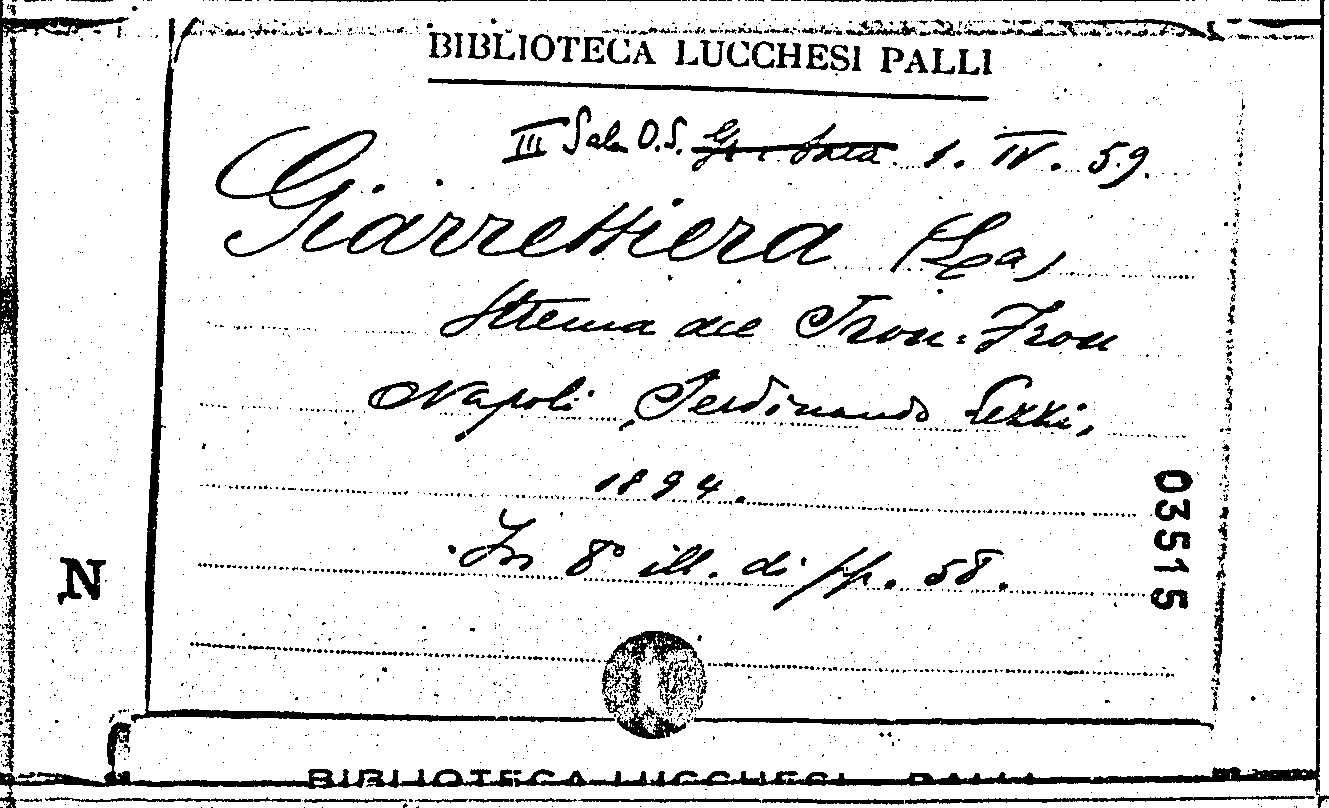 BIBLIOTECA LUCCHESI PALLI
III Sala O.S. 1. IV. 59.
Giarrettiera (La)
Strenna del Frou-Frou
Napoli, Ferdinando Lezzi,
1894.
In 8° ill. di pp. 58.
03515
N
BIBLIOTECA LUCCHESI PALLI